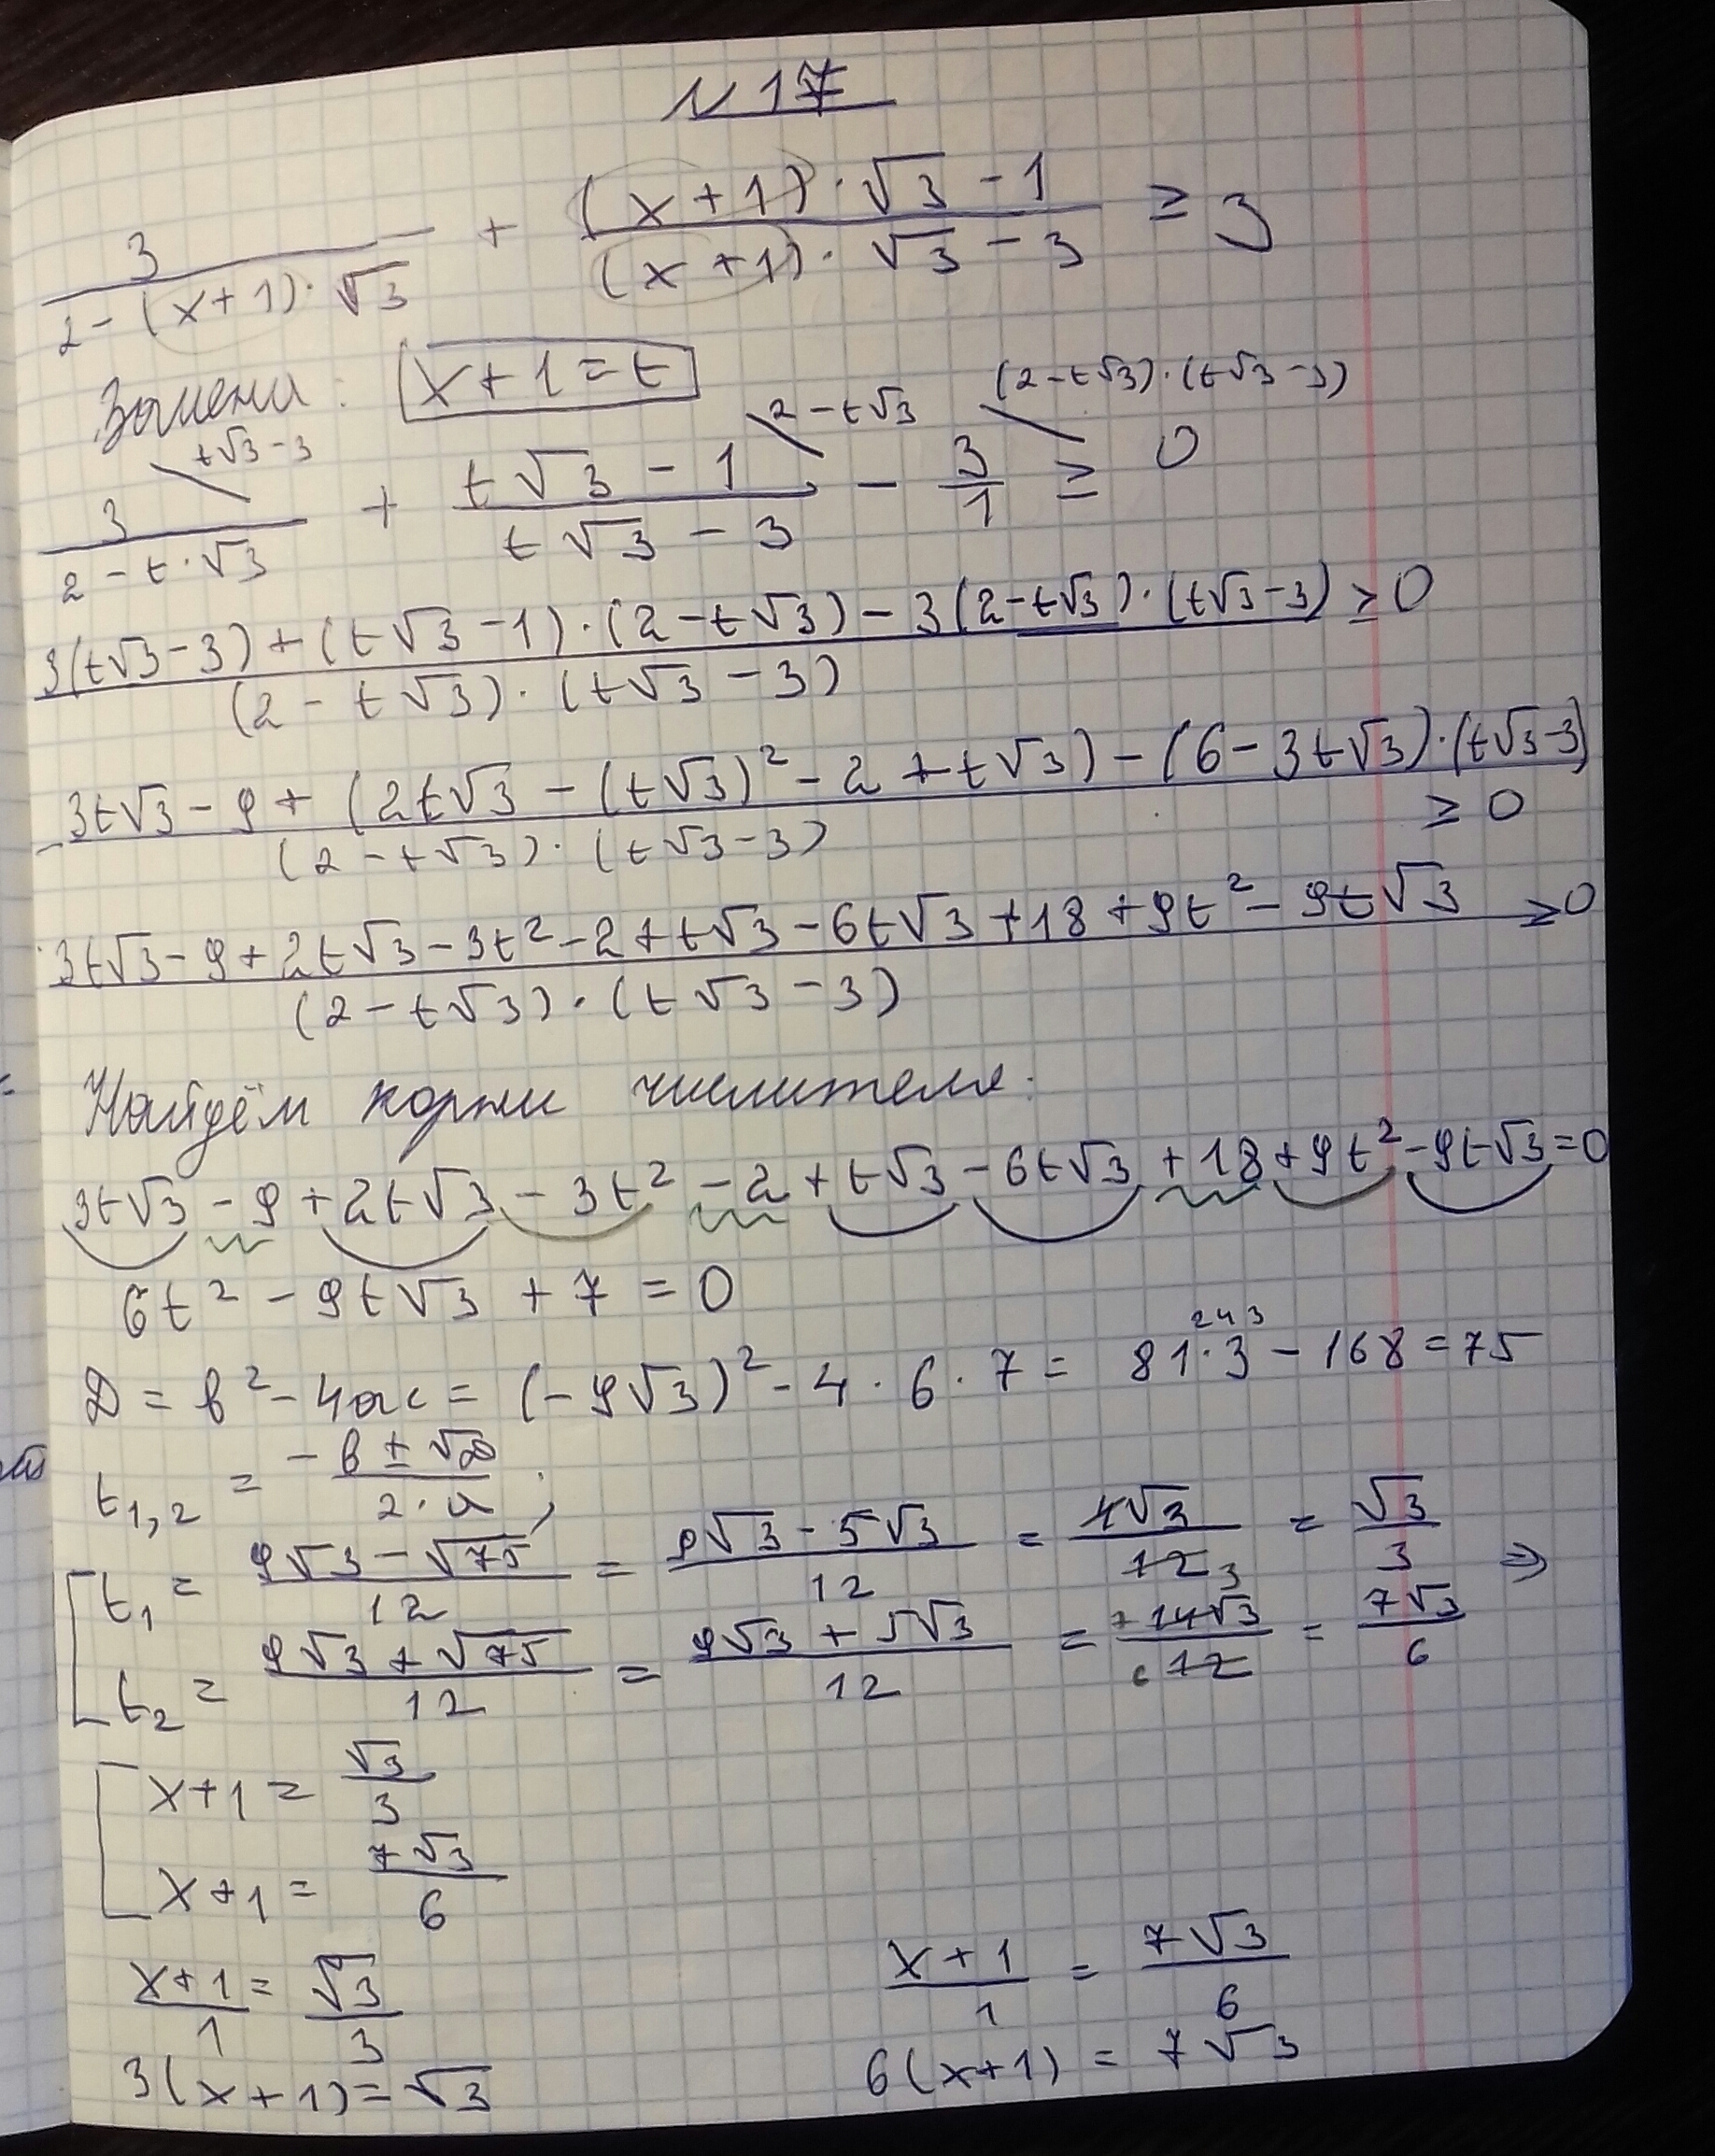 №17
3/(2-(x+1)·√3) + ((x+1)·√3-1)/((x+1)·√3-3) ≥ 3
Замена: x+1=t
t√3-3 2-t√3 (2-t√3)·(t√3-3)
3/(2-t·√3) + (t√3-1)/(t√3-3) - 3/1 ≥ 0
(3(t√3-3)+(t√3-1)·(2-t√3)-3(2-t√3)·(t√3-3))/((2-t√3)·(t√3-3)) ≥ 0
(3t√3-9+(2t√3-(t√3)²-2+t√3)-(6-3t√3)·(t√3-3))/((2-t√3)·(t√3-3)) ≥ 0
(3t√3-9+2t√3-3t²-2+t√3-6t√3+18+9t²-9t√3)/((2-t√3)·(t√3-3)) ≥ 0
Найдём корни числителя:
3t√3-9+2t√3-3t²-2+t√3-6t√3+18+9t²-9t√3=0
6t²-9t√3+7=0
243
D=b²-4ac=(-9√3)²-4·6·7=81·3-168=75
t1,2=(-b±√D)/(2·a);
t1=(9√3-√75)/12=(9√3-5√3)/12=4√3/12 3=√3/3 ⇒
t2=(9√3+√75)/12=(9√3+5√3)/12=7 14√3/6 12=7√3/6
x+1=√3/3
x+1=7√3/6
(x+1)/1=√3/3 (x+1)/1=7√3/6
3(x+1)=√3 6(x+1)=7√3